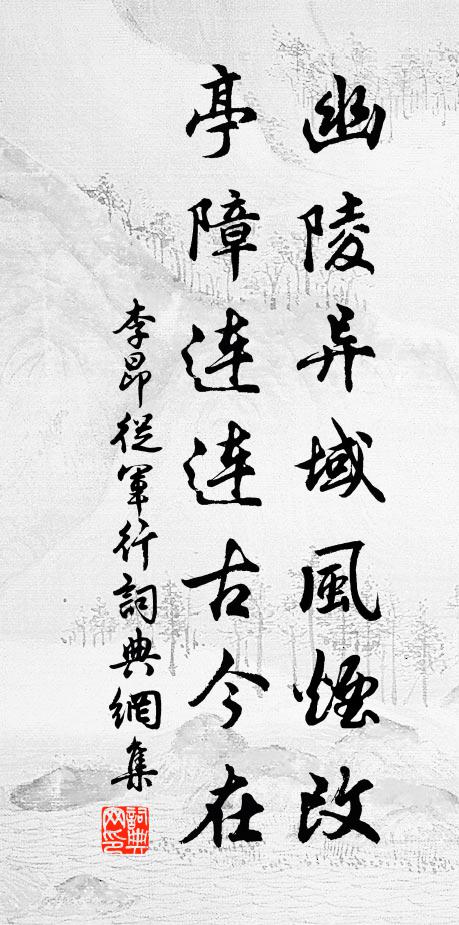 幽陵异域風煙改
亭障连连古今在
李昂從軍行詞典網集
詞典
网印